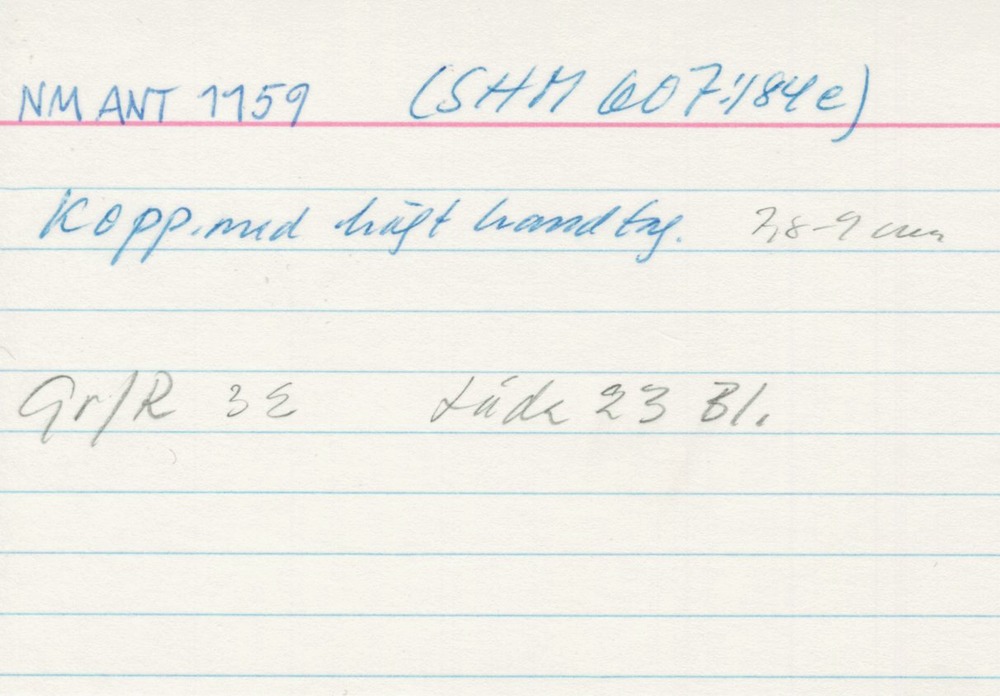 NM ANT 1959 (SHM 607:184 e)
Kopp med högt handtag. 7,8-9 cm
Gr/R 3E Låda 23 Bl.